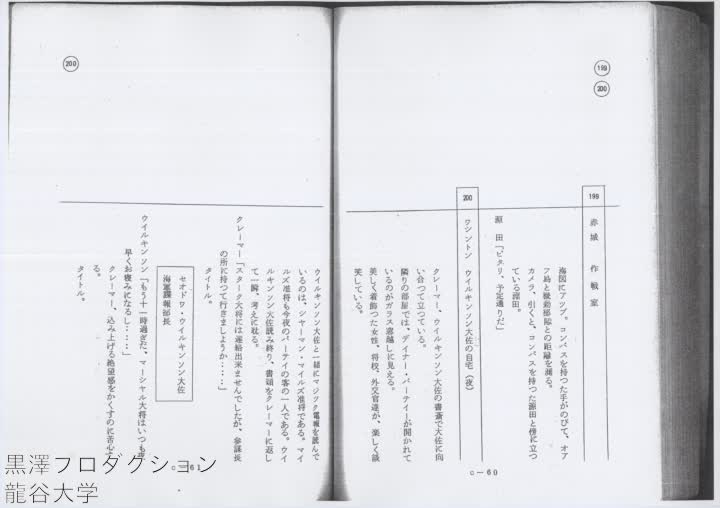 199
200
199
赤城 作戦室
海図にアップ。コンパスを持つた手がのびて、オア
フ島と機動部隊との距離を測る。
カメラ、引くと、コンパスを持つた源田と傍に立つ
ている淵田。
源田「ピタリ、予定通りだ」
200
ワシントン ウイルキンソン大佐の自宅(夜)
クレーマー、ウイルキンソン大佐の書斎で大佐に向
い合つて立つている。
隣りの部屋では、デイナー・パーテイーが開かれて
いるのがガラス窓越しに見える。
美しく着飾つた女性、将校、外交官達が、楽しく談
笑している。
c—60
209
ウイルキンソン大佐と一緒にマジツク電報を読んで
いるのは、シヤーマン・マイルズ准将である。マイ
ルズ准将も今夜のパーテイの客の一人である。ウイ
ルキンソン大佐読み終り、書類をクレーマーに返し
て一瞬、考えに耽る。
クレーマー「スターク大将には連絡出来ませんでしたが、参謀長
の所に持つて行きましようか……」
タイトル。
セオドワ・ウイルキンソン大佐
海軍諜報部長
ウイルキンソン「もう十一時過ぎだ、マーシャル大将はいつも
早くお寝みになるし……」
クレーマー、込み上げる絶望感をかくすのに苦心す
る。
タイトル。
c—61
黒澤プロダクション
龍谷大学